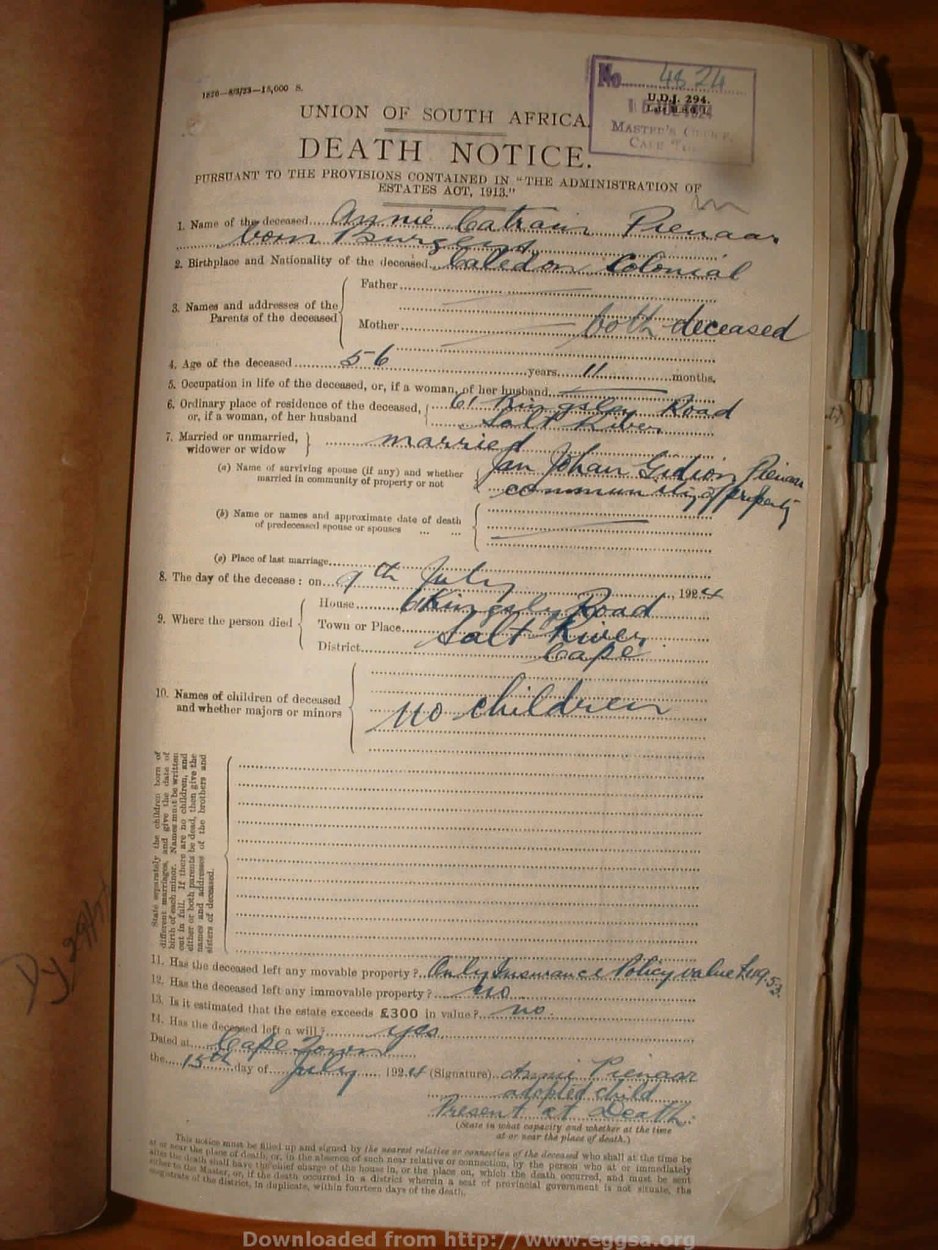 1826—8/3/23—15,000 S.
No. 4824
U.D.J. 294.
MASTER'S OFFICE,
UNION OF SOUTH AFRICA.
DEATH NOTICE.
PURSUANT TO THE PROVISIONS CONTAINED IN "THE ADMINISTRATION OF
ESTATES ACT, 1913."
1. Name of the deceased Annie Catrain Pienaar
born Burgers
2. Birthplace and Nationality of the deceased Caledon Colonial
3. Names and addresses of the Parents of the deceased
Father
Mother both deceased
4. Age of the deceased 56 years, 11 months.
5. Occupation in life of the deceased, or, if a woman, of her husband
6. Ordinary place of residence of the deceased, 61 Kingsley Road
or, if a woman, of her husband Salt River
7. Married or unmarried, widower or widow married
(a) Name of surviving spouse (if any) and whether Jan Johan Gidion Pienaar
married in community of property or not community of property
(b) Name or names and approximate date of death
of predeceased spouse or spouses
(c) Place of last marriage
8. The day of the decease : on 9th July, 1924
9. Where the person died
House Kingsley Road
Town or Place Salt River
District Cape
10. Names of children of deceased
and whether majors or minors no children
State separately the children born of
different marriages, and give the date of
birth of each minor. Names must be written
out in full. If there are no children, and
either or both parents be dead, then give the
names and addresses of the brothers and
sisters of deceased.
11. Has the deceased left any movable property? Only Insurance Policy value
12. Has the deceased left any immovable property? no
13. Is it estimated that the estate exceeds £300 in value? no.
14. Has the deceased left a will? yes
Dated at Cape Town
the 15th day of July 1924 (Signature) Annie Pienaar
adopted child
Present at Death.
(State in what capacity and whether at the time
at or near the place of death.)
This notice must be filled up and signed by the nearest relative or connection of the deceased who shall at the time be
at or near the place of death, or, in the absence of such near relative or connection, by the person who at or immediately
after the death shall have the chief charge of the house in, or the place on, which the death occurred, and must be sent
either to the Master, or, if the death occurred in a district wherein a seat of provincial government is not situate, the
magistrate of the district, in duplicate, within fourteen days of the death.
Downloaded from http://www.eggsa.org